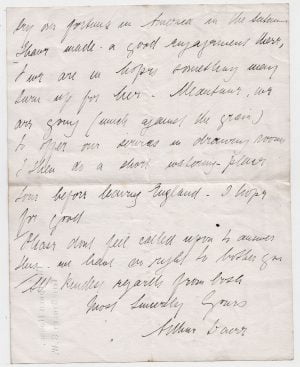 try our fortunes in America in the autumn
I have made a good engagement there,
& we are in hopes something may
turn up for her. Meantime, we
are going (much against the grain)
to offer our services in drawing rooms
& then do a short watering-place
tour before leaving England. I hope
for good
Please dont feel called upon to answer
this - we have no right to bother you
With kindest regards from both
Most Sincerely Yours
Arthur